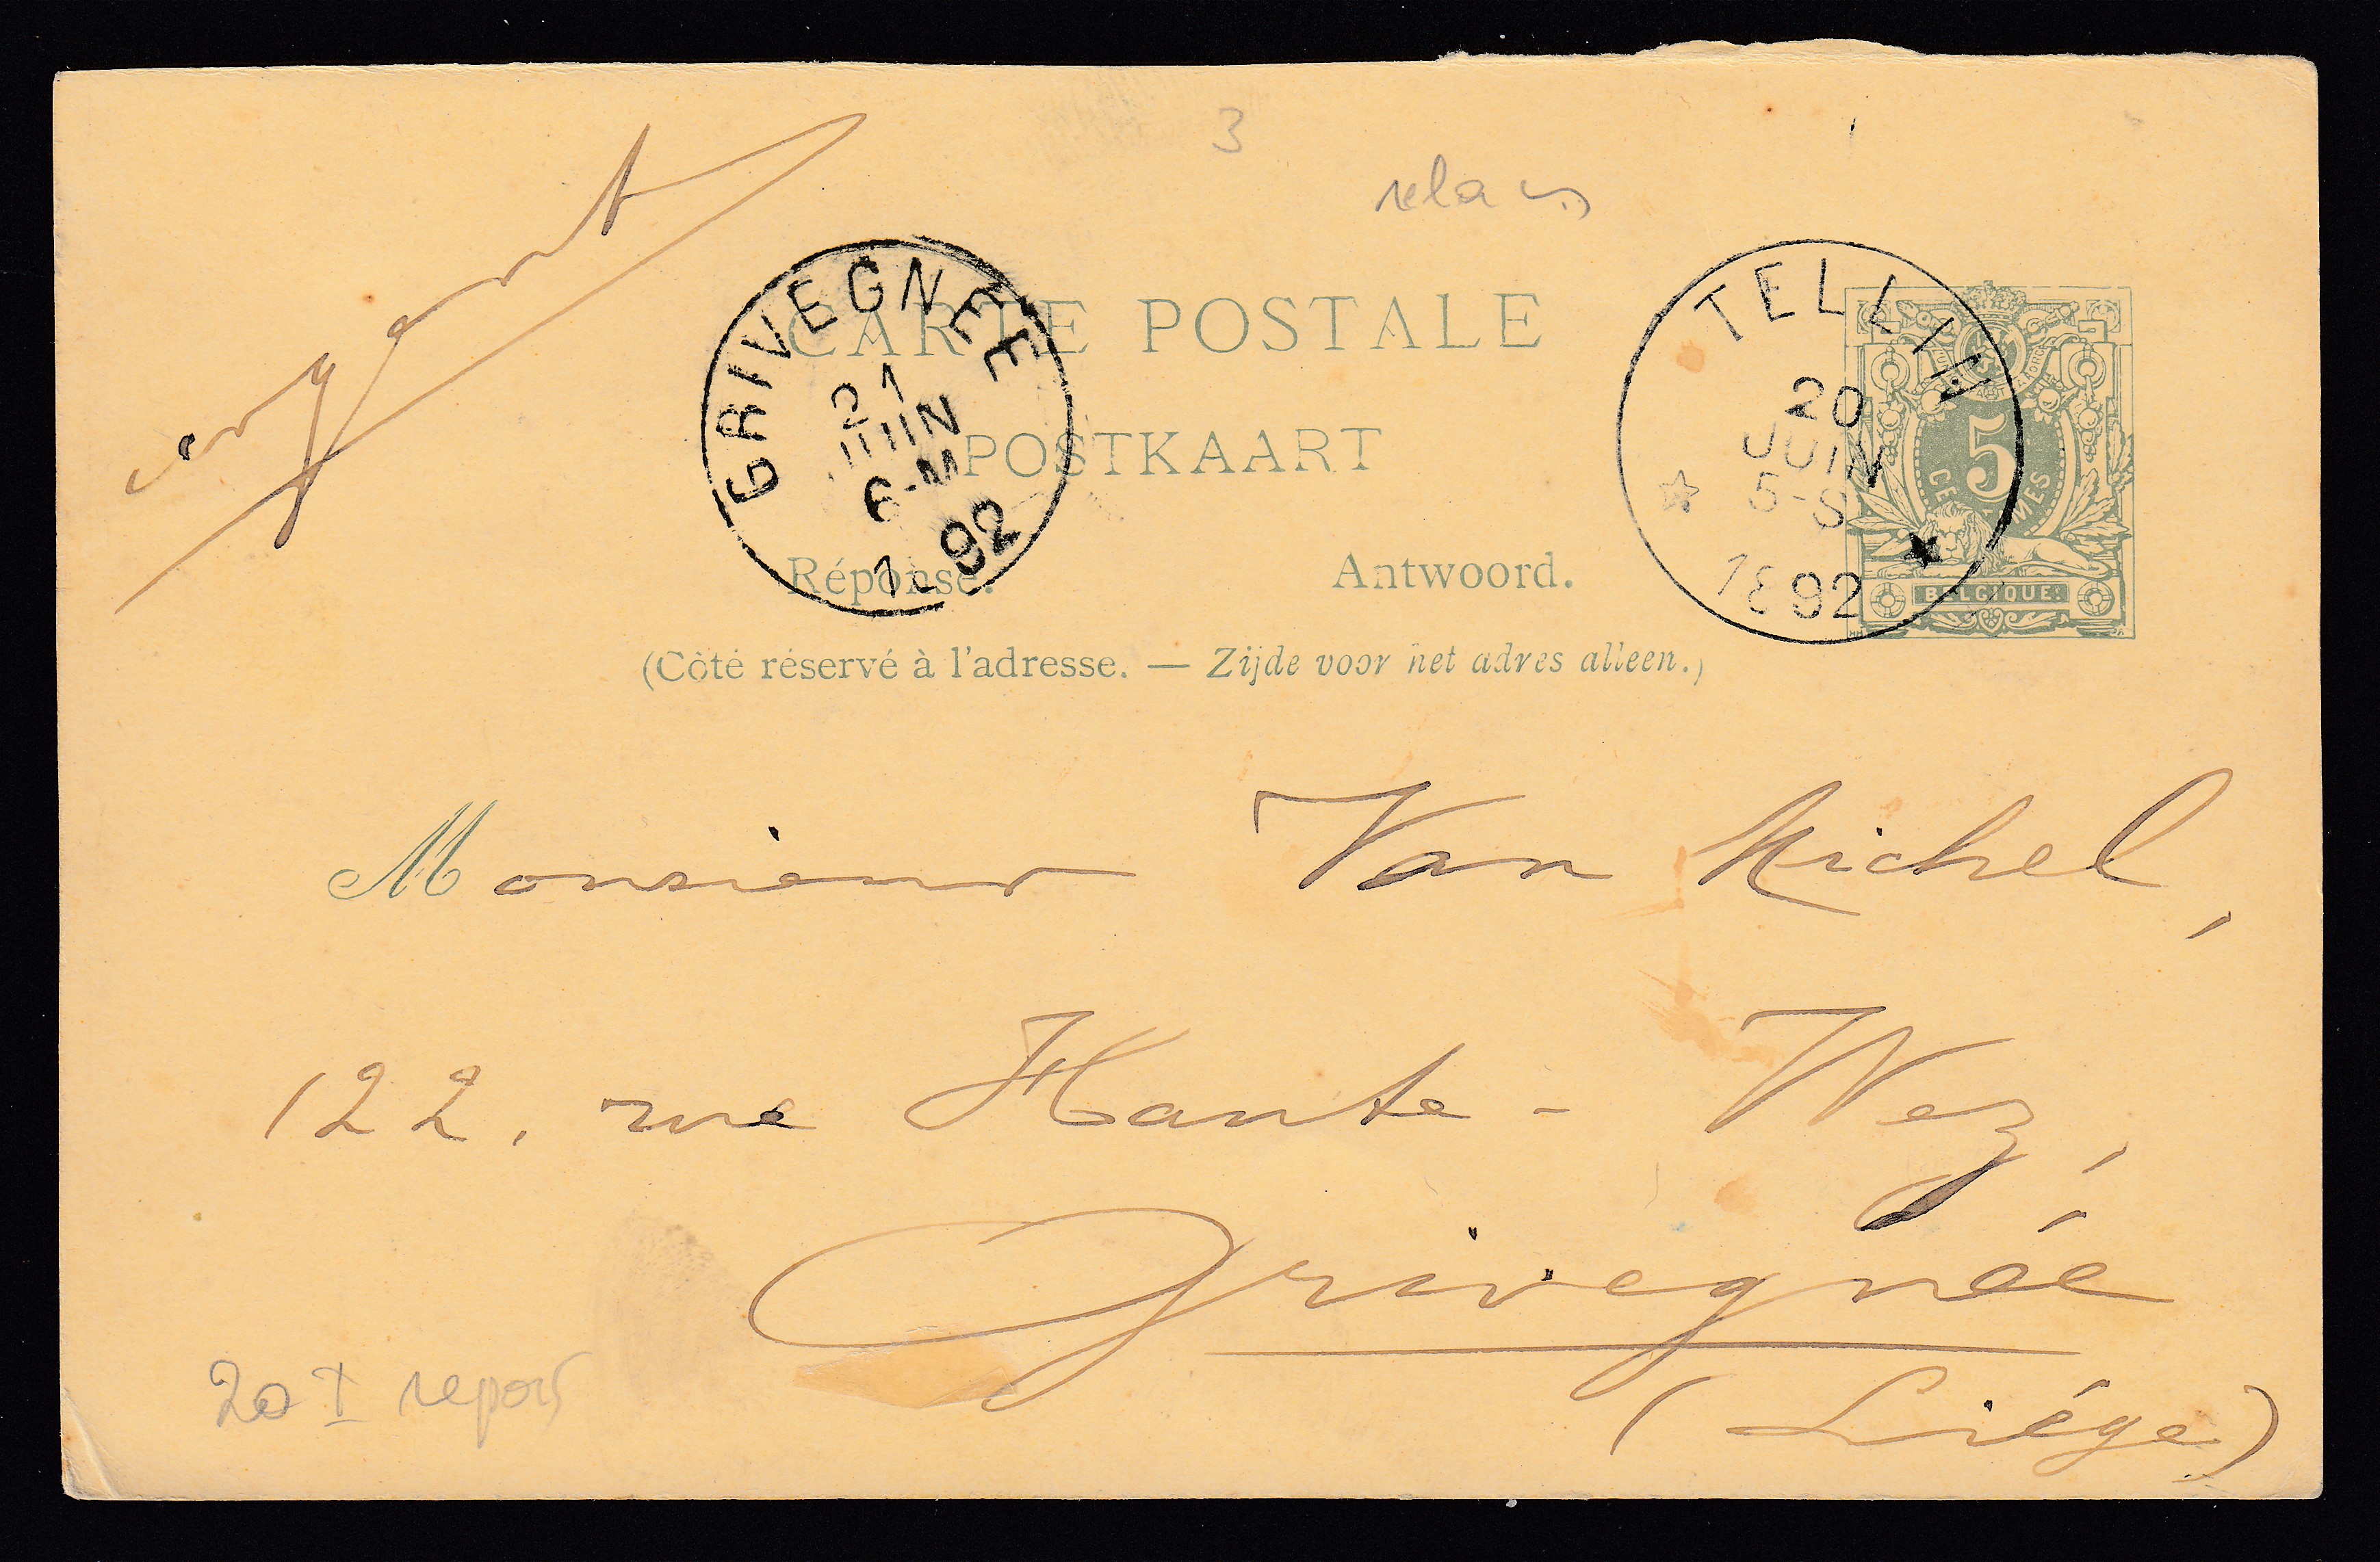 3
relais
urgent
GRIVEGNEE
21
JUIN
6-M
1 92
CARTE POSTALE
POSTKAART
Réponse. Antwoord.
(Côté réservé à l'adresse. — Zijde voor het adres alleen.)
TELLIN
20
JUIN
5-S
1892
5
CENTIMES
BELGIQUE
Monsieur Van Michel,
122, rue Haute-Wez,
Grivegnée
(Liége)
20 I